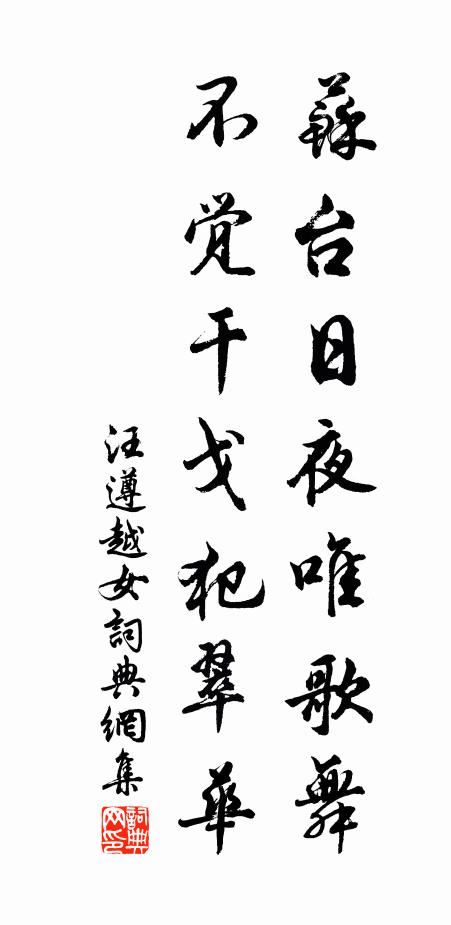 蘇台日夜唯歌舞
不覚干戈犯翠華
汪遵越女詞典網集
詞典網印